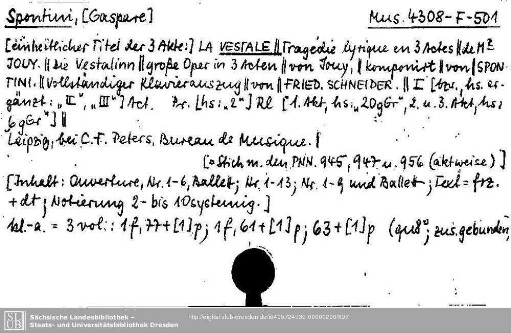 Spontini, [Gaspare]
Mus. 4308-F-501
[einheitlicher Titel der 3 Akte:] LA VESTALE || Tragédie lyrique en 3 Actes || de Mr.
JOUY. || Die Vestalinn || große Oper in 3 Acten || von Jouy, || komponirt || von || SPON-
TINI. || Vollständiger Klavierauszug || von || FRIED. SCHNEIDER. || I [bzw., hs. er-
gänzt: "II", "III"] Act. Pr. [hs: "2"] Rl [1. Akt, hs: "20gGr", 2. u. 3. Akt, hs:
"6gGr"] ||
Leipzig, bei C. F. Peters, Bureau de Musique. |
[o Stich m. den PNN. 945, 947 u. 956 (aktweise)]
[Inhalt: Ouverture, Nr. 1-6, Ballett; Nr. 1-13; Nr. 1-9 und Ballett; Text = frz.
+ dt; Notierung 2- bis 10systemig.]
kl.-a. = 3 vol.: 1f, 77+[1]p; 1f, 61+[1]p; 63+[1]p (qu8°; zus.gebunden)
Sächsische Landesbibliothek –
Staats- und Universitätsbibliothek Dresden